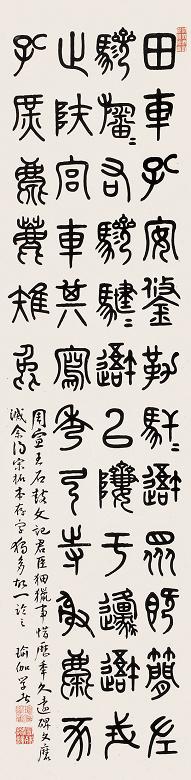 田車孔安鋚勒馯=䢩眾既簡左
驂旛=右驂騝=䢩以隮于邍䢩戎
止陝宮車其寫秀弓寺射麋豕
孔庶麀鹿雉兔
周宣王石鼓文記君臣畋獵事惜歷年久遠碑文磨
滅余得宋拓本存字獨多故一臨之
瑜伽學者